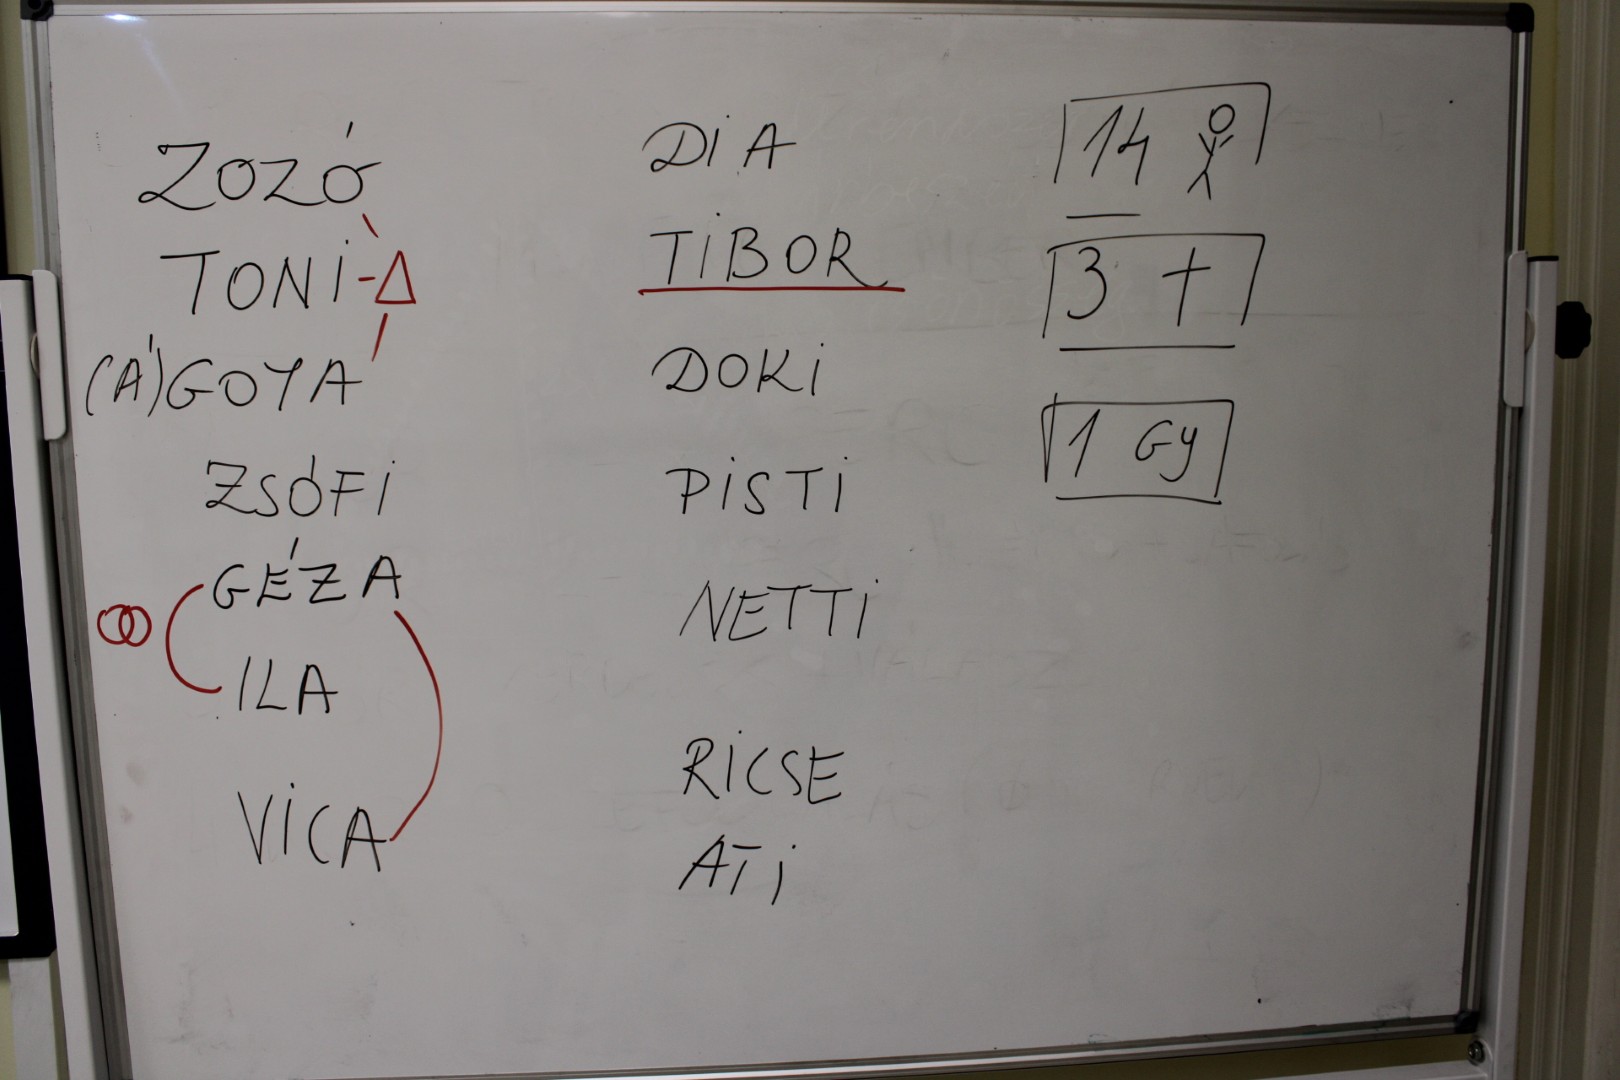 ZOZÓ
TONI-Δ
(Á)GOYA
ZSÓFI
GÉZA
ILA
VICA
DIA
TIBOR
DOKI
PISTI
NETTI
RICSE
ATI
14
3 +
1 GY